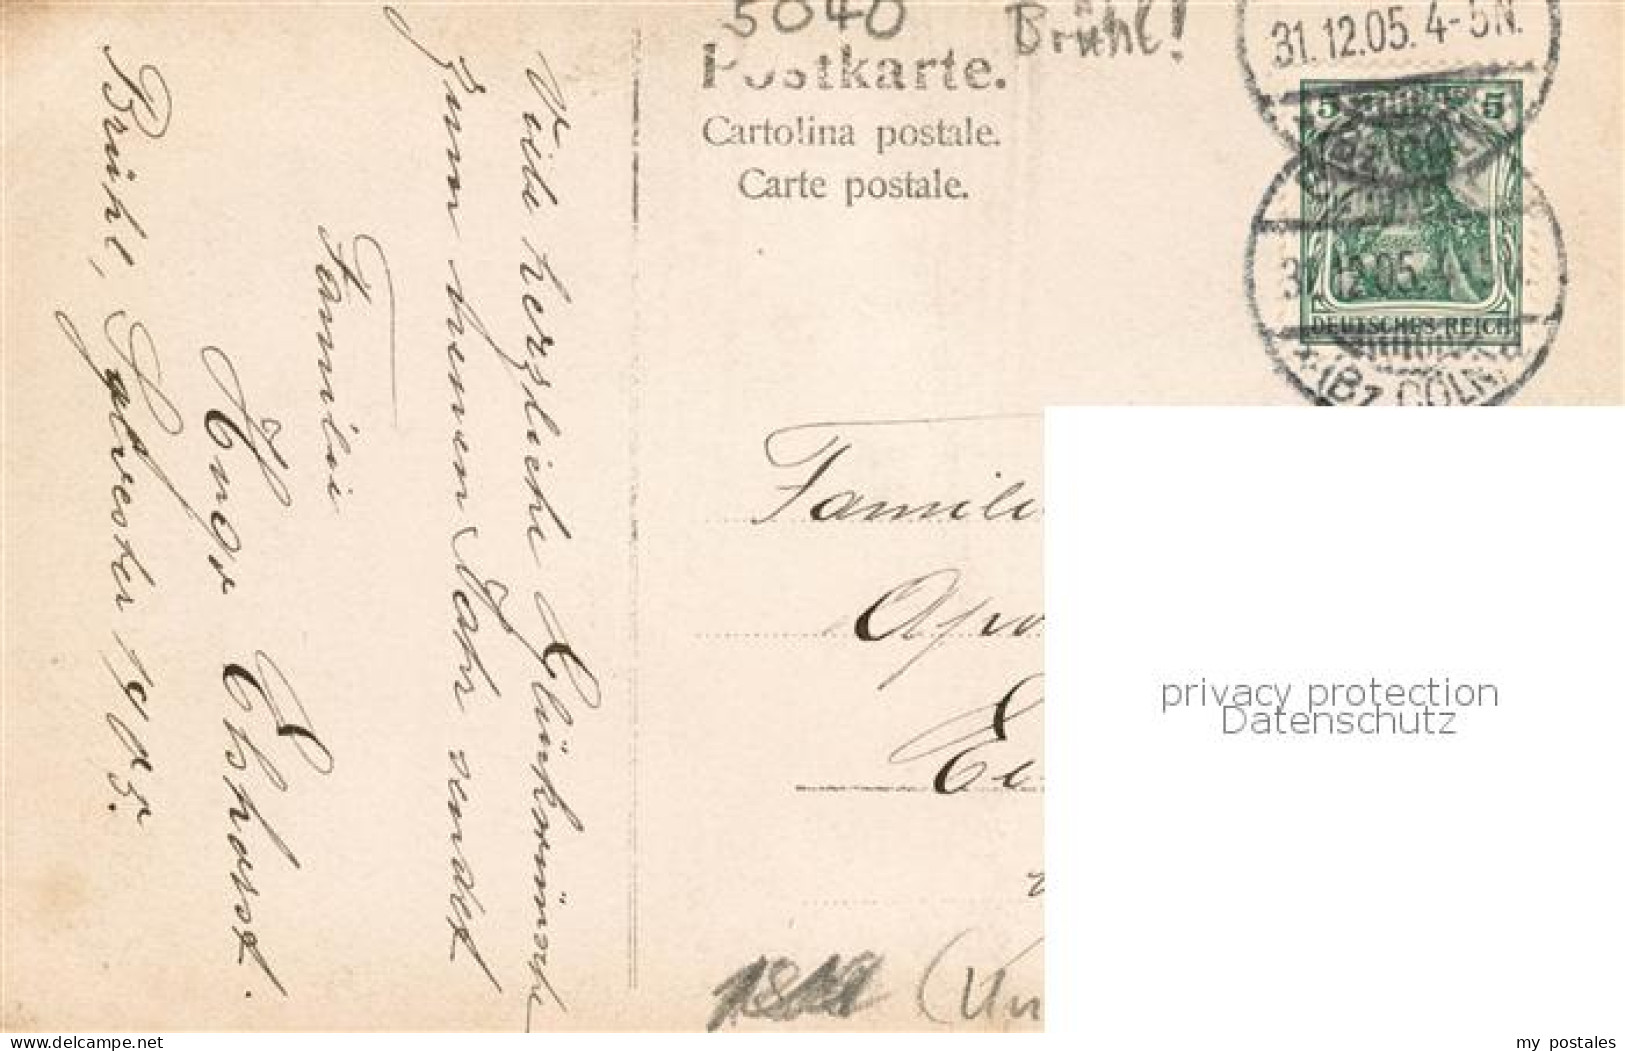 5040
Brühl!
Postkarte.
Cartolina postale.
Carte postale.
31.12.05. 4-5N.
5 5
DEUTSCHES REICH
31.12.05. 4-5
(Bz. CÖLN)
Viele herzliche Glückwünsche
zum neuen Jahr sendet
Familie
Hugo
Brühl, Sylvester 1905.
Famili
Apo
(Un
privacy protection
Datenschutz
www.delcampe.net
my postales